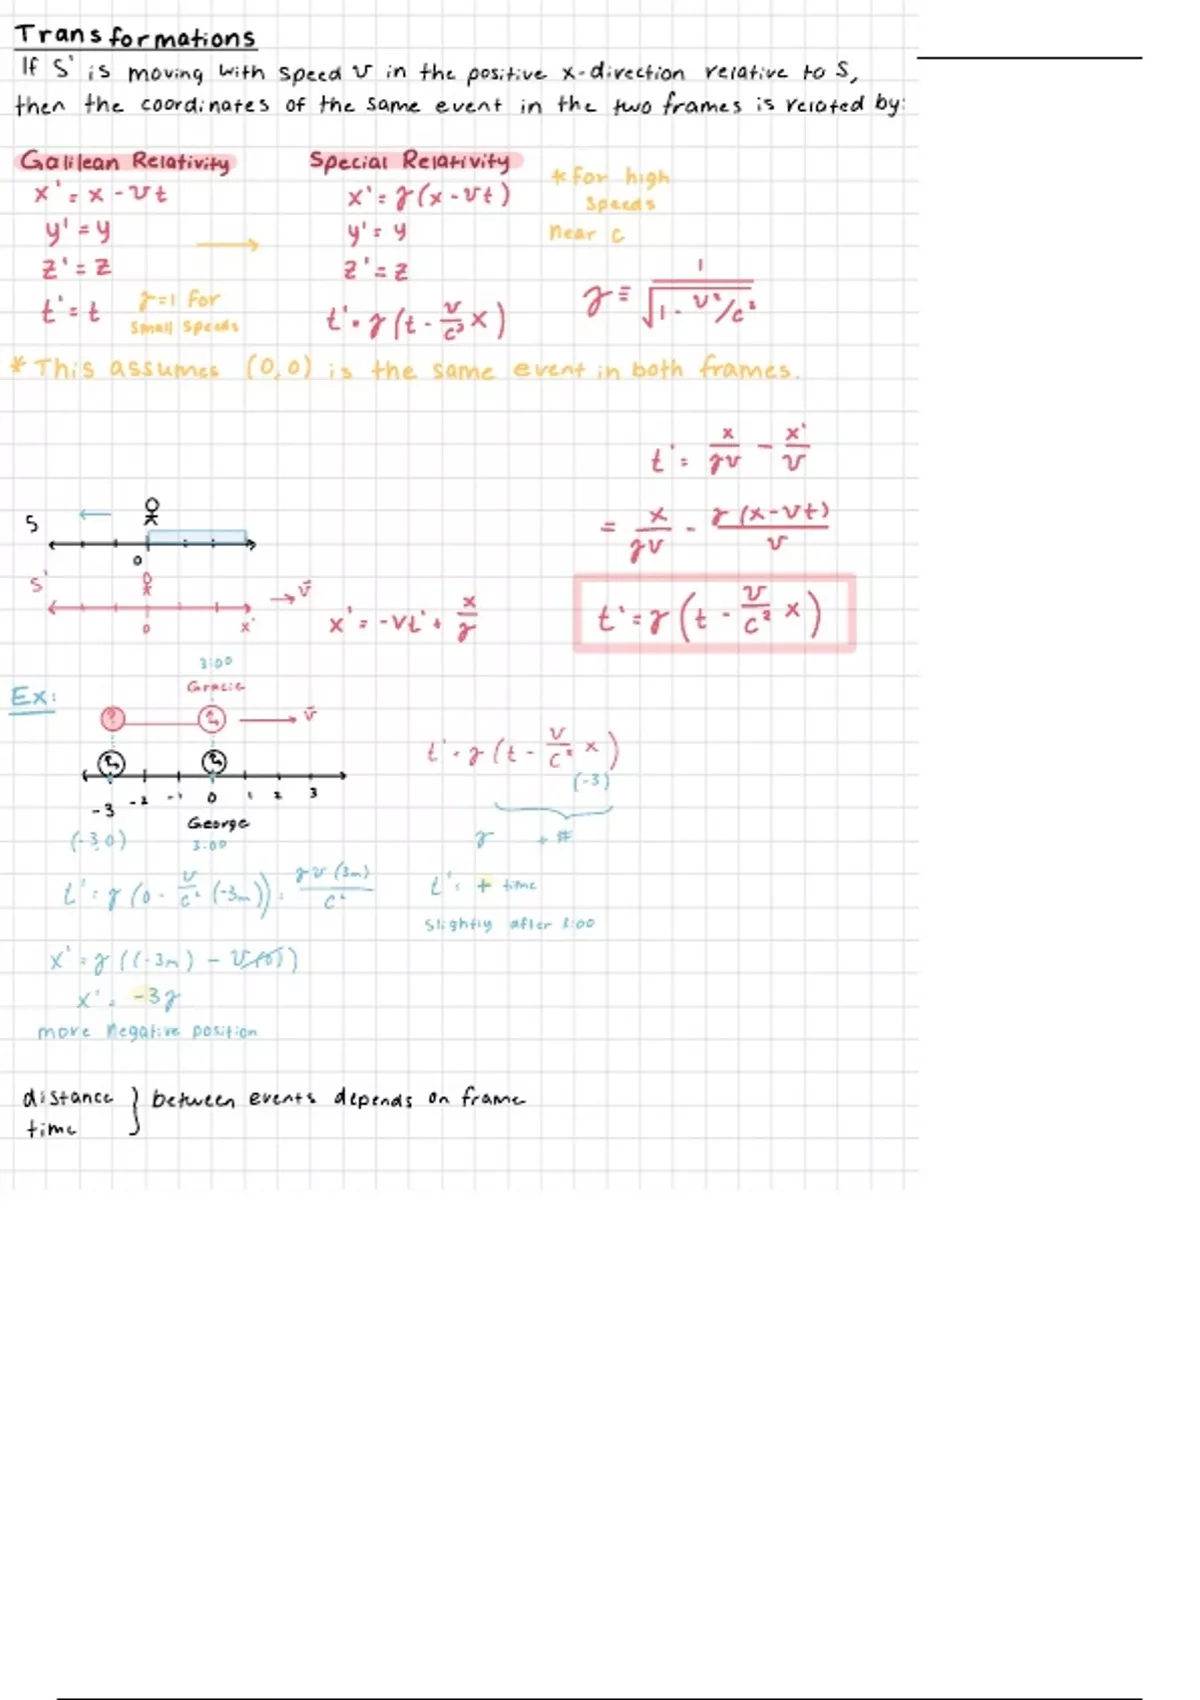 Transformations
If S' is moving with speed v in the positive x-direction relative to S,
then the coordinates of the same event in the two frames is related by:
Galilean Relativity
x' = x - vt
y' = y
z' = z
t' = t
γ=1 for
small speeds
Special Relativity
x' = γ(x - vt)
y' = y
z' = z
t' = γ(t - v/c² x)
* for high
speeds
near c
γ ≡ 1/√(1 - v²/c²)
* This assumes (0,0) is the same event in both frames.
t' = x/γv - x'/v
= x/γv - γ(x-vt)/v
t' = γ(t - v/c² x)
S
0
S'
v⃗
0 x'
x' = -vt' + x/γ
Ex:
3:00
Gracie
? v⃗
-3 -2 -1 0 1 2 3
George
(-3,0)
3:00
t' = γ(t - v/c² x)
(-3)
γ + #
t' = γ(0 - v/c² (-3m)) = γv(3m)/c²
t' = + time
slightly after 3:00
x' = γ((-3m) - v(0))
x' = -3γ
more negative position
distance } between events depends on frame
time